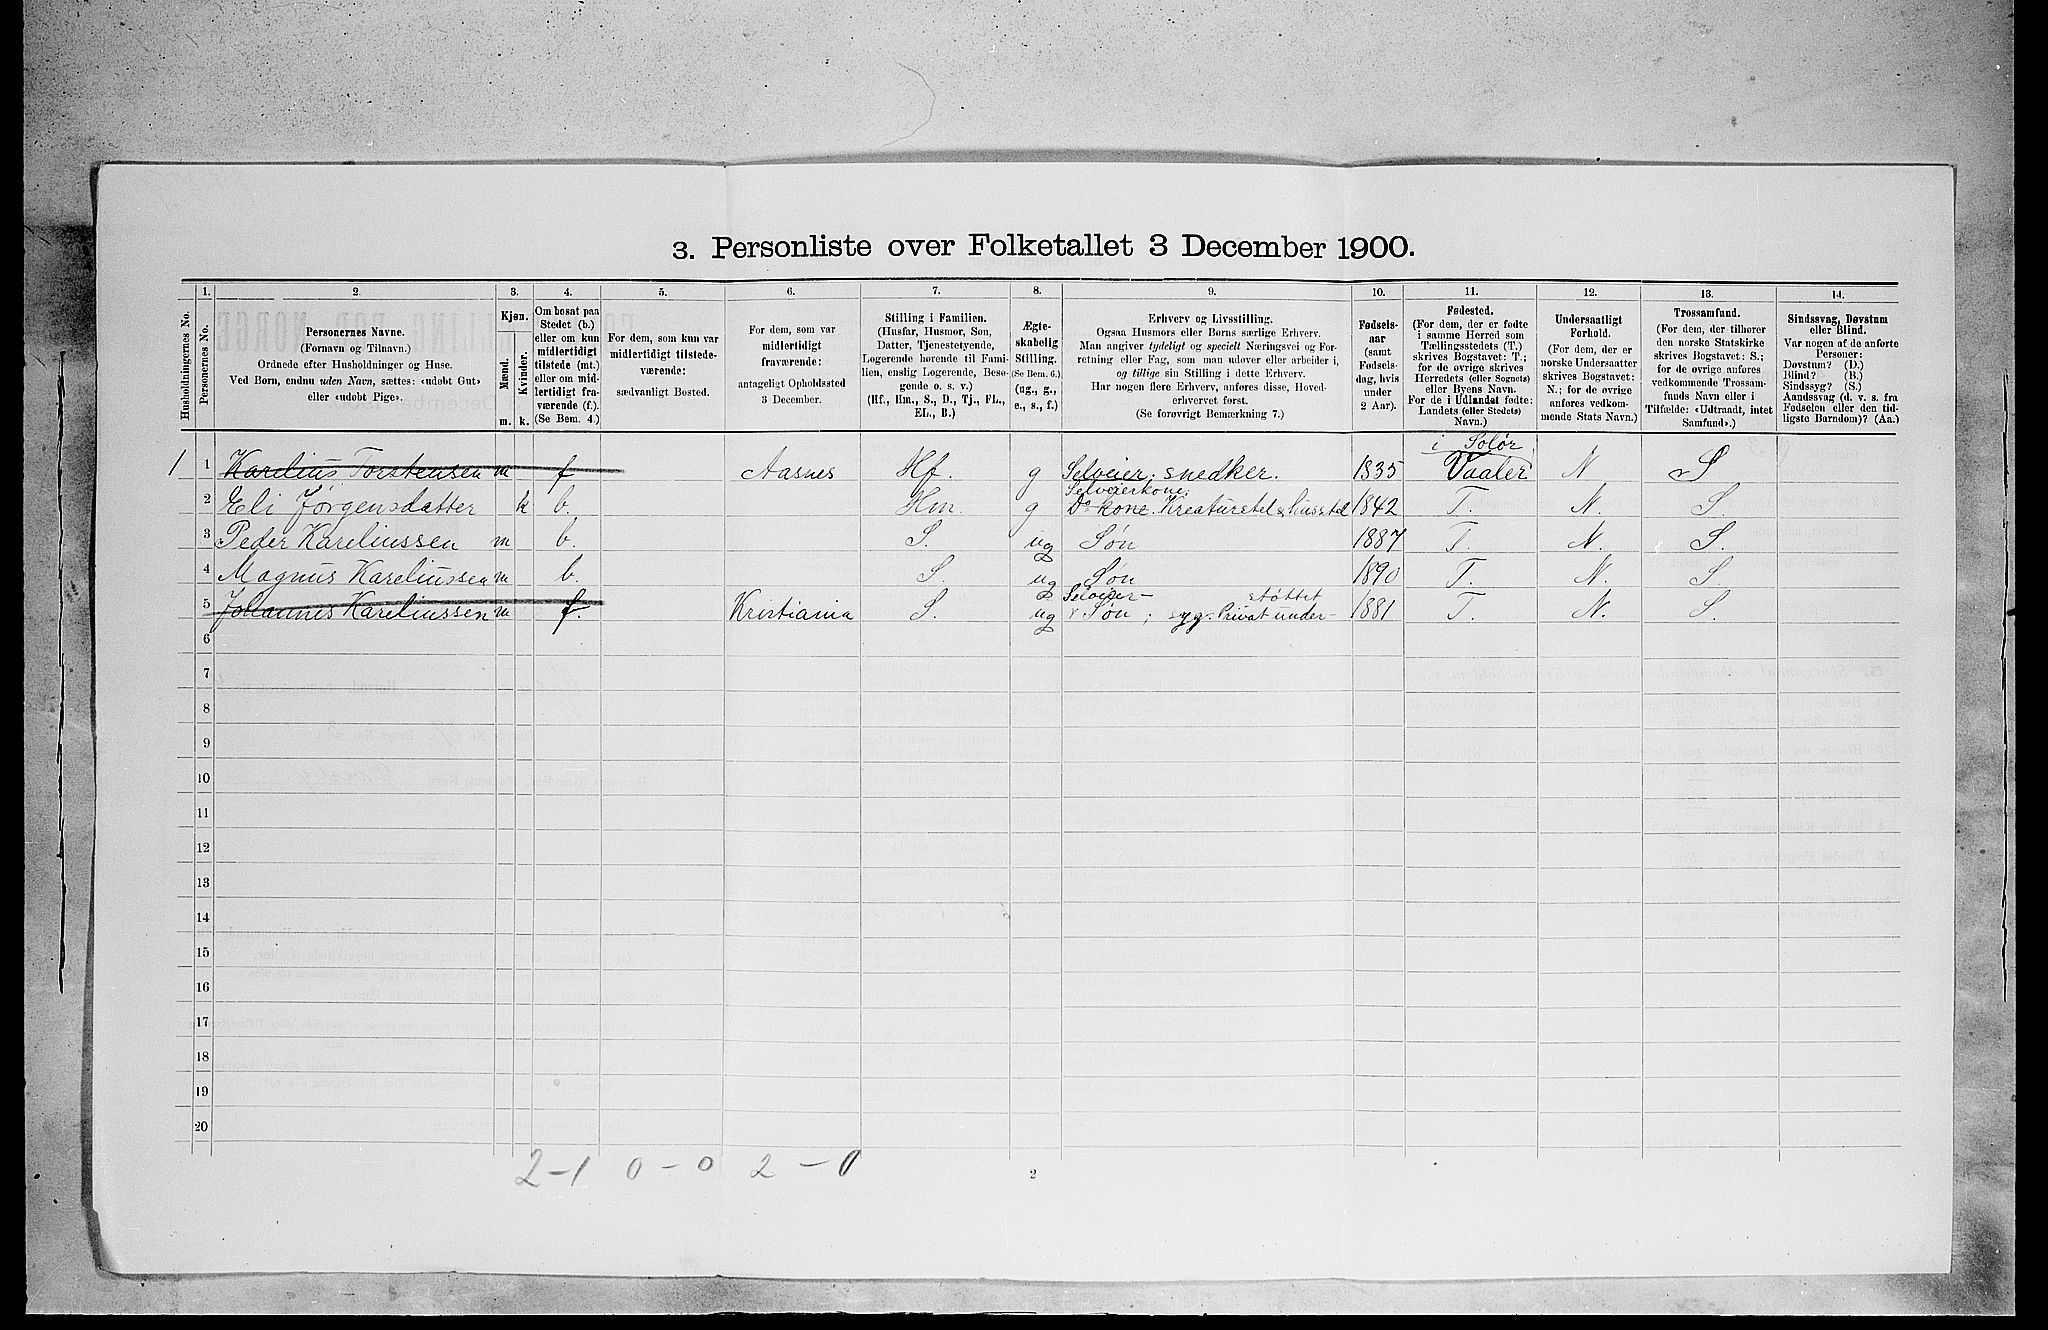 3. Personliste over Folketallet 3 December 1900.
1. 2. 3. 4. 5. 6. 7. 8. 9. 10. 11. 12. 13. 14.
Husholdningernes No.
Personernes No.
Personernes Navne.
(Fornavn og Tilnavn.)
Ordnede efter Husholdninger og Huse.
Ved Børn, endnu uden Navn, sættes: «udøbt Gut»
eller «udøbt Pige».
Kjøn.
Mænd.
Kvinder.
m. k.
Om bosat paa
Stedet (b.)
eller om kun
midlertidigt
tilstede (mt.)
eller om mid-
lertidigt fra-
værende (f.).
(Se Bem. 4.)
For dem, som kun var
midlertidigt tilstede-
værende:
sædvanligt Bosted.
For dem, som var
midlertidigt
fraværende:
antageligt Opholdssted
3 December.
Stilling i Familien.
(Husfar, Husmor, Søn,
Datter, Tjenestetyende,
Logerende hørende til Fami-
lien, enslig Logerende, Besø-
gende o. s. v.)
(Hf., Hm., S., D., Tj., FL.,
EL., B.)
Ægte-
skabelig
Stilling.
(Se Bem. 6.)
(ug., g.,
e., s., f.)
Erhverv og Livsstilling.
Ogsaa Husmors eller Børns særlige Erhverv.
Man angiver tydeligt og specielt Næringsvei og For-
retning eller Fag, som man udøver eller arbeider i,
og tillige sin Stilling i dette Erhverv.
Har nogen flere Erhverv, anføres disse, Hoved-
erhvervet først.
(Se forøvrigt Bemærkning 7.)
Fødsels-
aar
(samt
Fødsels-
dag, hvis
under
2 Aar).
Fødested.
(For dem, der er fødte
i samme Herred som
Tællingsstedets (T.)
skrives Bogstavet: T.;
for de øvrige skrives
Herredets (eller Sognets)
eller Byens Navn.
For de i Udlandet fødte:
Landets (eller Stedets)
Navn.)
Undersaatligt
Forhold.
(For dem, der er
norske Undersaatter
skrives Bogstavet:
N.; for de øvrige
anføres vedkom-
mende Stats Navn.)
Trossamfund.
(For dem, der tilhører
den norske Statskirke
skrives Bogstavet: S.;
for de øvrige anføres
vedkommende Trossam-
funds Navn eller i
Tilfælde: «Udtraadt, intet
Samfund».)
Sindssvag, Døvstum
eller Blind.
Var nogen af de anførte
Personer:
Døvstum? (D.)
Blind? (B.)
Sindssyg? (S.)
Aandssvag (d. v. s. fra
Fødselen eller den tid-
ligste Barndom)? (Aa.)
i Solør
1 1 Karelius Torstensen m f Aasnes Hf. g Selveier; snedker. 1835 Vaaler N S
Selveierkone;
2 Eli Jørgensdatter k b. Hm. g Do kone. Kreaturstel & husstel 1842 T. N. S.
3 Peder Kareliussen m b. S. ug Søn 1887 T. N. S.
4 Magnus Kareliussen m b. S. ug Søn 1890 T. N. S.
Selveier- støttet
5 Johannes Kareliussen m f. Kristiania S. ug Søn; syg: Privat under- 1881 T. N. S.
6
7
8
9
10
11
12
13
14
15
16
17
18
19
20
2-1 0-0 2-0
2